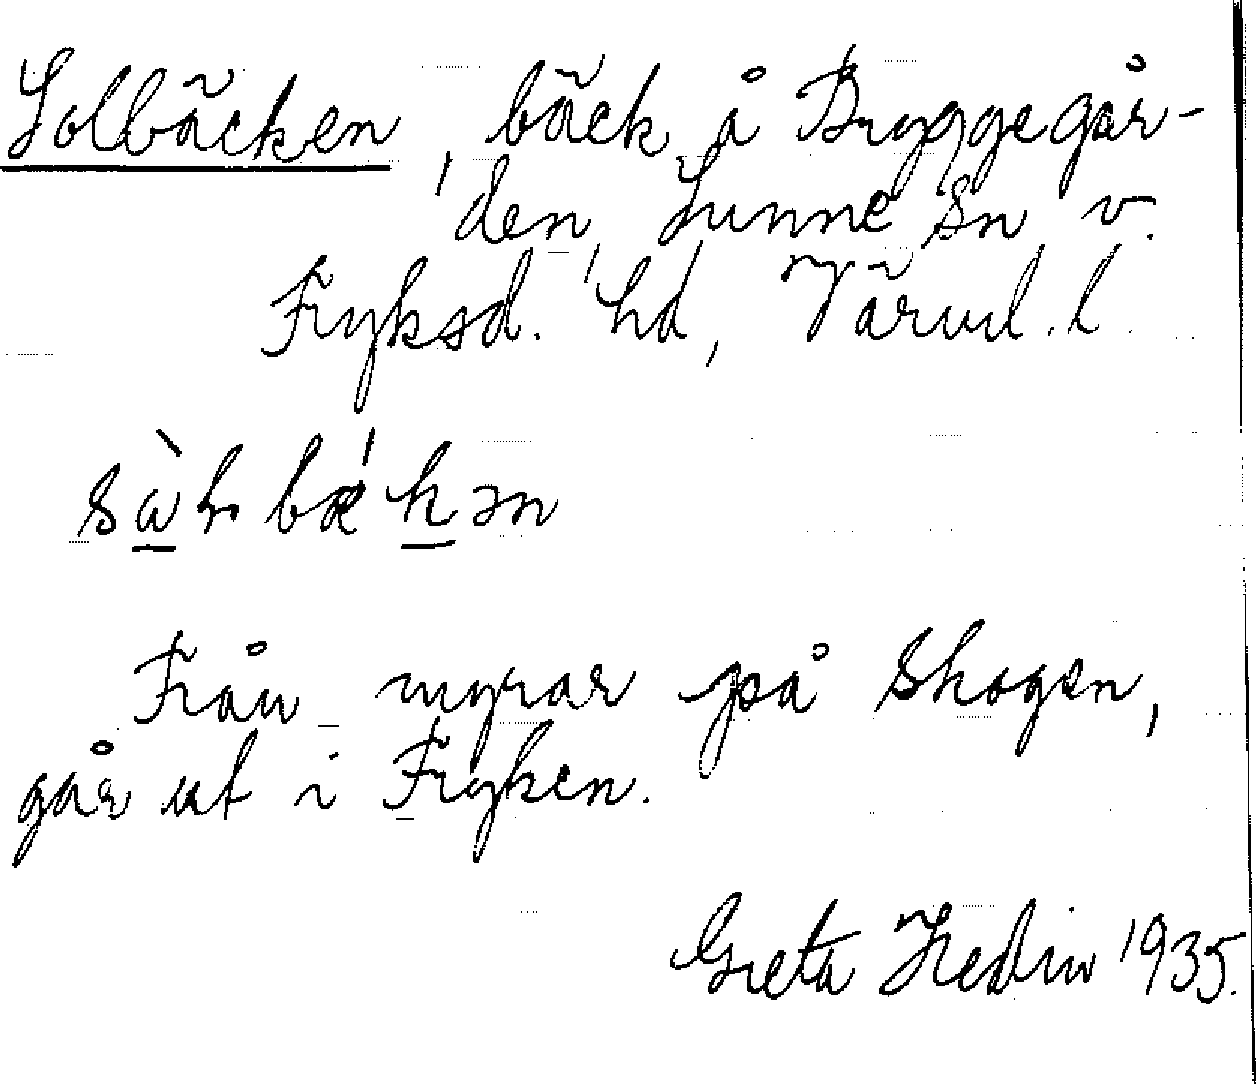 Solbäcken, bäck å Bryggegår-
den, Sunne sn v.
Fryksd. hd, Värml. l.
sὼɽbæ'kən
Från myrar på skogen,
går ut i Fryken.
Greta Hedin 1935.